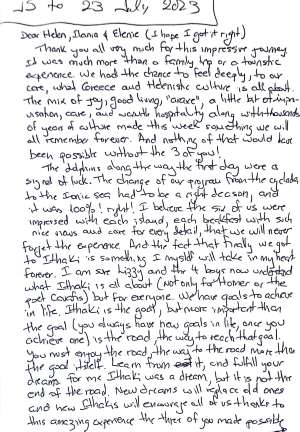 15 to 23 July 2023
Dear Helen, Ilania & Elenie (I hope I got it right)
Thank you all very much for this impressive journey.
It was much more than a family trip or a touristic
experience. We had the chance to feel deeply, to our
core, what Greece and Helenistic culture is all about.
The mix of joy, good living, a little bit of impro-
visation, care, and warmth hospitality along with thousands
of years of culture made this week something we will
all remember forever. And nothing of that would have
been possible without the 3 of you!
The dolphins along the way the first day were a
signal of luck. The change of our program from the Cyclads
to the Ionic sea had to be a right decision, and
it was 100% right! I believe the six of us were
impressed with each island, each breakfast with such
nice views and care for every detail, that we will never
forget the experience. And the fact that finally we got
to Ithaki is something I myself will take in my heart
forever. I am sure Lizzy and the 4 boys now understand
what Ithaki is all about (Not only for Homer or the
poet Cavafis) but for everyone. We have goals to achieve
in life. Ithaki is the goal, but more important than
the goal (you always have new goals in life, once you
achieve one) is the road, the way to reach that goal.
You must enjoy the road, the way to the road more than
the goal itself. Learn from it, and fulfill your
dreams. For me Ithaki was a dream, but it is not the
end of the road. New dreams will replace old ones
and new Ithakis will encourage all of us thanks to
this amazing experience the three of you made possible.